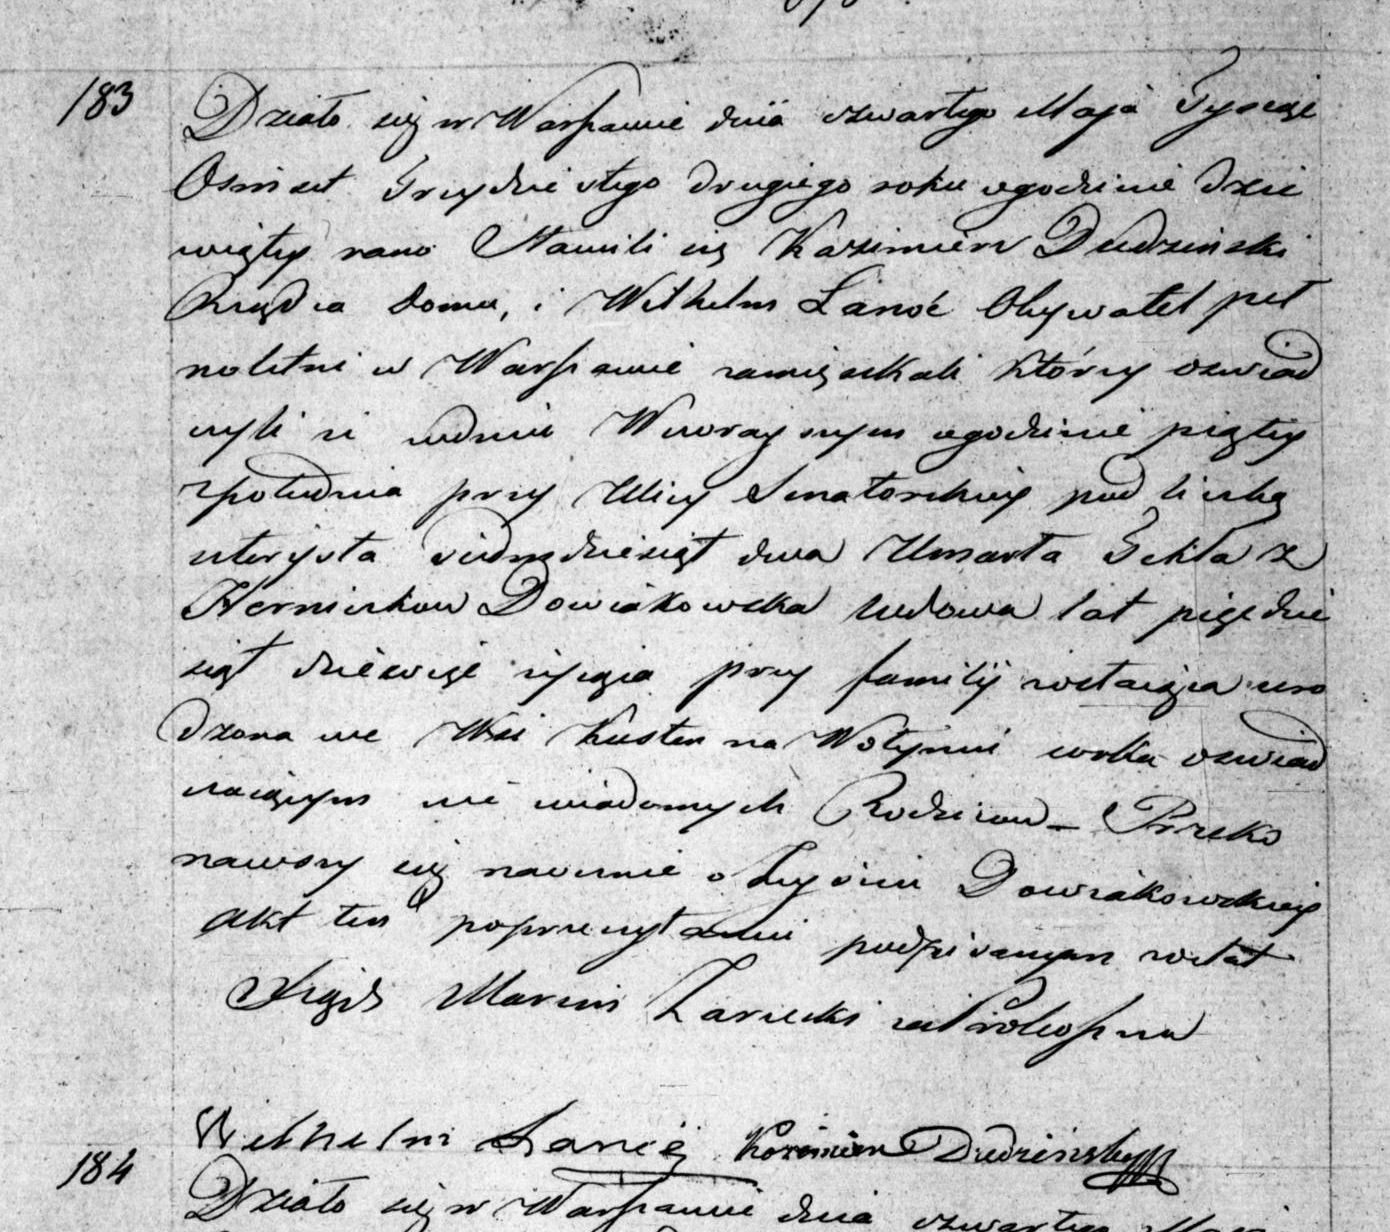 183 Działo się w Warszawie dnia czwartego Maja Tysiąc
Osmset Trzydziestego drugiego roku o godzinie dzie
wiątey rano Stawili się Kazimierz Dudziński
Rządca domu, i Wilhelm Obywatel peł
noletni w Warszawie zamięszkali którzy oswiad
czyli iż wdniu Wczorayszym o godzinie piątey
zpołudnia przy Ulicy Senatorskiey pod liczbą
czterysta siedmdziesiąt dwa Umarła Tekla z
Dowiakowska wdowa lat pięćdzie
siąt dziewięć życia przy familij zostaiąca uro
dzona we Wsi na Wołyniu wedle oswiad
czaiących nie wiadomych Rodziców – Przeko
nawszy się naocznie o Zeyściu Dowiakowskiey
Akt ten po przeczytaniu podpisanym został
Xiądz Marcin
Wilhelm Kazimierz Dudziński
184 Działo się w Warszawie dnia czwartego Maja